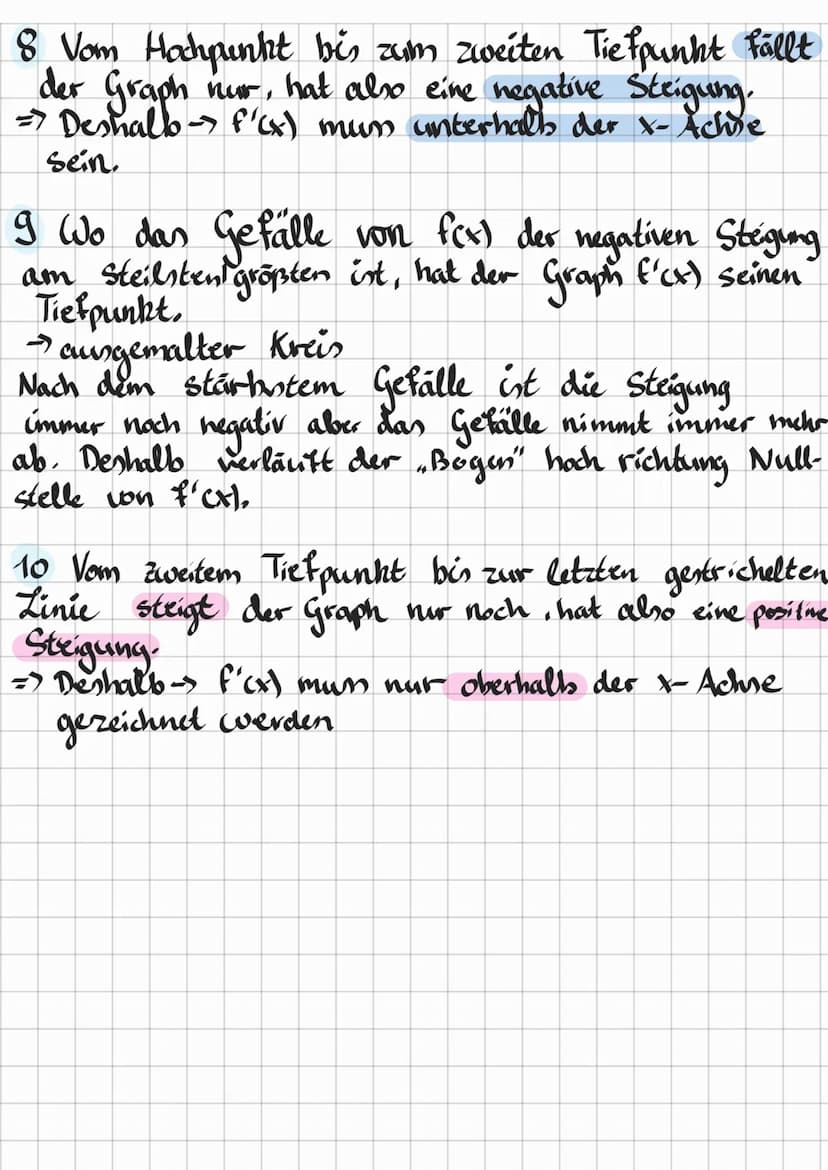 8 Vom Hochpunkt bis zum zweiten Tiefpunkt fällt
der Graph nur, hat also eine negative Steigung.
=> Deshalb → f'(x) muss unterhalb der x-Achse
sein.
9 Wo das Gefälle von f(x) der negativen Stegung
am steilsten/größten ist, hat der Graph f'(x) seinen
Tiefpunkt.
→ ausgemalter Kreis
Nach dem stärkstem Gefälle ist die Steigung
immer noch negativ aber das Gefälle nimmt immer mehr
ab. Deshalb verläuft der „Bogen" hoch richtung Null-
stelle von f'(x).
10 Vom zweitem Tiefpunkt bis zur letzten gestrichelten
Linie steigt der Graph nur noch, hat also eine positive
Steigung.
=> Deshalb → f'(x) muss nur oberhalb der x-Achse
gezeichnet werden